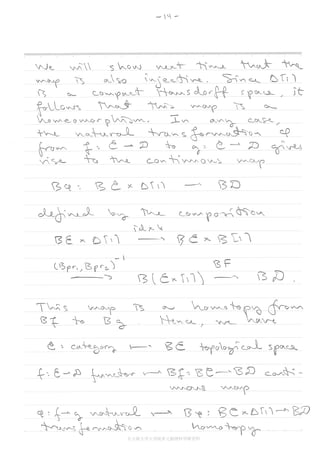 -14-
We will show next time that the
map is also injective. Since Δ[1]
is a compact Hausdorff space, it
follows that this map is a
homeomorphism. In any case,
the natural transformation φ
from f: C → D to g: C → D gives
rise to the continuous map
Bφ: BC × Δ[1] → BD
defined by the composition
BC × Δ[1] id×h→ BC × B[1]
(Bpr₁, Bpr₂)⁻¹→ B(C×[1]) BF→ BD.
This map is a homotopy from
Bf to Bg. Hence, we have
C: category ↦ BC topological space
f: C→D functor ↦ Bf: BC→BD conti-
nuous map
φ: f→g natural ↦ Bφ: BC×Δ[1]→BD
transformation homotopy